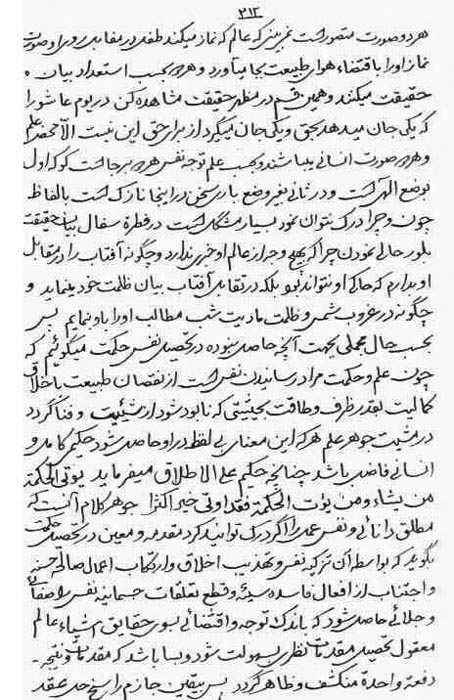 ۳۱۲
هر دو صورت متصور است نمی بینی که عالم که نماز میکند طفلی در مقابل روی او صورت
نماز او را باقتضاء هوای طبیعت بجا میآورد و هر دو بحسب استعداد بیان
حقیقت میکنند و همین قسم در مظهر حقیقت مشاهده کن در یوم عاشورا
که یکی جان میدهد بحق و یکی جان میگیرد از برای حق این نیست الا محض علم
و هر دو صورت انسانی میباشند و بحسب علم توجه نفس هر دو بر جا است کو که اول
بوضع الهی است و در ثانی بغیر وضع باری سخن در اینجا نازک است بالفاظ
چون و چرا درک نتوان نمود بسیار مشکل است در فطرة سفال بیان حقیقت
بلور حالی نمودن چرا که بهیچ وجه از عالم او خبری ندارد و چگونه آفتاب را در مقابل
او بدارم که حاکی او نتواند بود بلکه در تقابل آفتاب بیان ظلمت خود مینماید و
چگونه در غروب شمس و ظلمت مادیت شب مطالب او را باو نمایم پس
بحسب حال مجملی بجهت آنچه حاصل نبوده در تحصیل نفس حکمت میگوئیم که
چون علم و حکمت مراد رسانیدن نفس است از نقصان طبیعت باخلاق
کمالیت بقدر ظرف و طاقت بحیثیتی که نابود شود از شیئیت و فنا گردد
در مشیت جوهر علم هر که این معنای بی لفظ در او حاصل شود حکیم کامل و
انسانی فاضل باشد چنانچه حکیم علی الاطلاق میفرماید یوتی الحکمة
من یشاء و من یؤت الحکمة فقد اوتی خیرا کثیرا جوهر کلام آنست که
مطلق دانائی و نفس عمل را اگر درک توانید کرد مقدمه و معین در تحصیل حکمت
گوید که بواسطه آن تزکیه نفس و تهذیب اخلاق و ارتکاب اعمال صالحه حسنه
و اجتناب از افعال فاسده سیئه و قطع تعلقات جسمانیه نفس را صفائی
و جلائی حاصل شود که باندک توجه و اقتضائی بسوی حقایق اشیاء عالم
معقول تحصیل مقدمات نظری بسهولت شود و بسا باشد که مقدمات و نتیجه
دفعة واحدة منکشف و ظاهر گردد پس یقین جازم راسخ حل عقد